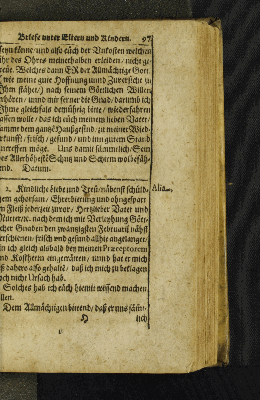 Briefe unter Eltern und Kindern. 97
seyn könne und also euch der Unkosten welchen
ihr des Ohres meinethalben erleiden / nicht ge-
reue. Welches dann ER der Allmächtige Gott
wie meine gute Hoffnung und Zuversicht zu
Ihm stähet / nach seinem Göttlichen Willen
erhören / unnd mir ferner die Gnad / darumb ich
Ihne gleichfals demühtig bitte / wiederfahren
lassen wolle / das ich euch meinem lieben Vater /
sammt dem gantzē Haußgesind / zu meiner Wied-
kunfft / frisch / gesund / und inn gutem Stand
antreffen möge. Uns damit sämmtlich / Sein
des Allerhöchstē Schutz und Schirm wolbefäh-
lend. Datum.
2. Kindliche Liebe und Treü / näbenst schüld- Alia.
gem gehorsam / Ehrerbietung und ohngespart-
en Fleiß jederzeit zuvor / Hertzlieber Vater und
Mutter / nach dem ich mit Verleyhung Göt-
licher Gnaden den zwantzigsten Februarij nähst
verschienen / frisch und gesund allhie angelanget /
bin ich gleich alsbald bey meinen Præceptoren
und Kostherrn eingetratten / unnd hat er mich
biß dahero also gehaltē / daß ich mich zu beklagen
noch nicht Ursach hab.
Solches hab ich euch hiemit wissend machen
wollen.
Dem Allmächtigen bittend / daß er uns säm-
H lich